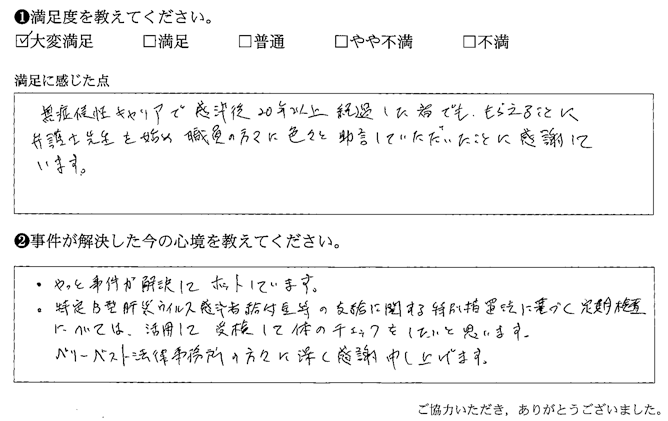 ❶満足度を教えてください。
☑大変満足 □満足 □普通 □やや不満 □不満
満足に感じた点
無症候性キャリアで感染後20年以上経過した者でも、もらえることに
弁護士先生を始め職員の方々に色々と助言していただいたことに感謝して
います。
❷事件が解決した今の心境を教えてください。
・やっと事件が解決してホットしています。
・特定B型肝炎ウイルス感染者給付金等の支給に関する特別措置法に基づく定期検査
については、活用して受検して体のチェックをしたいと思います。
ベリーベスト法律事務所の方々に深く感謝申し上げます。
ご協力いただき，ありがとうございました。